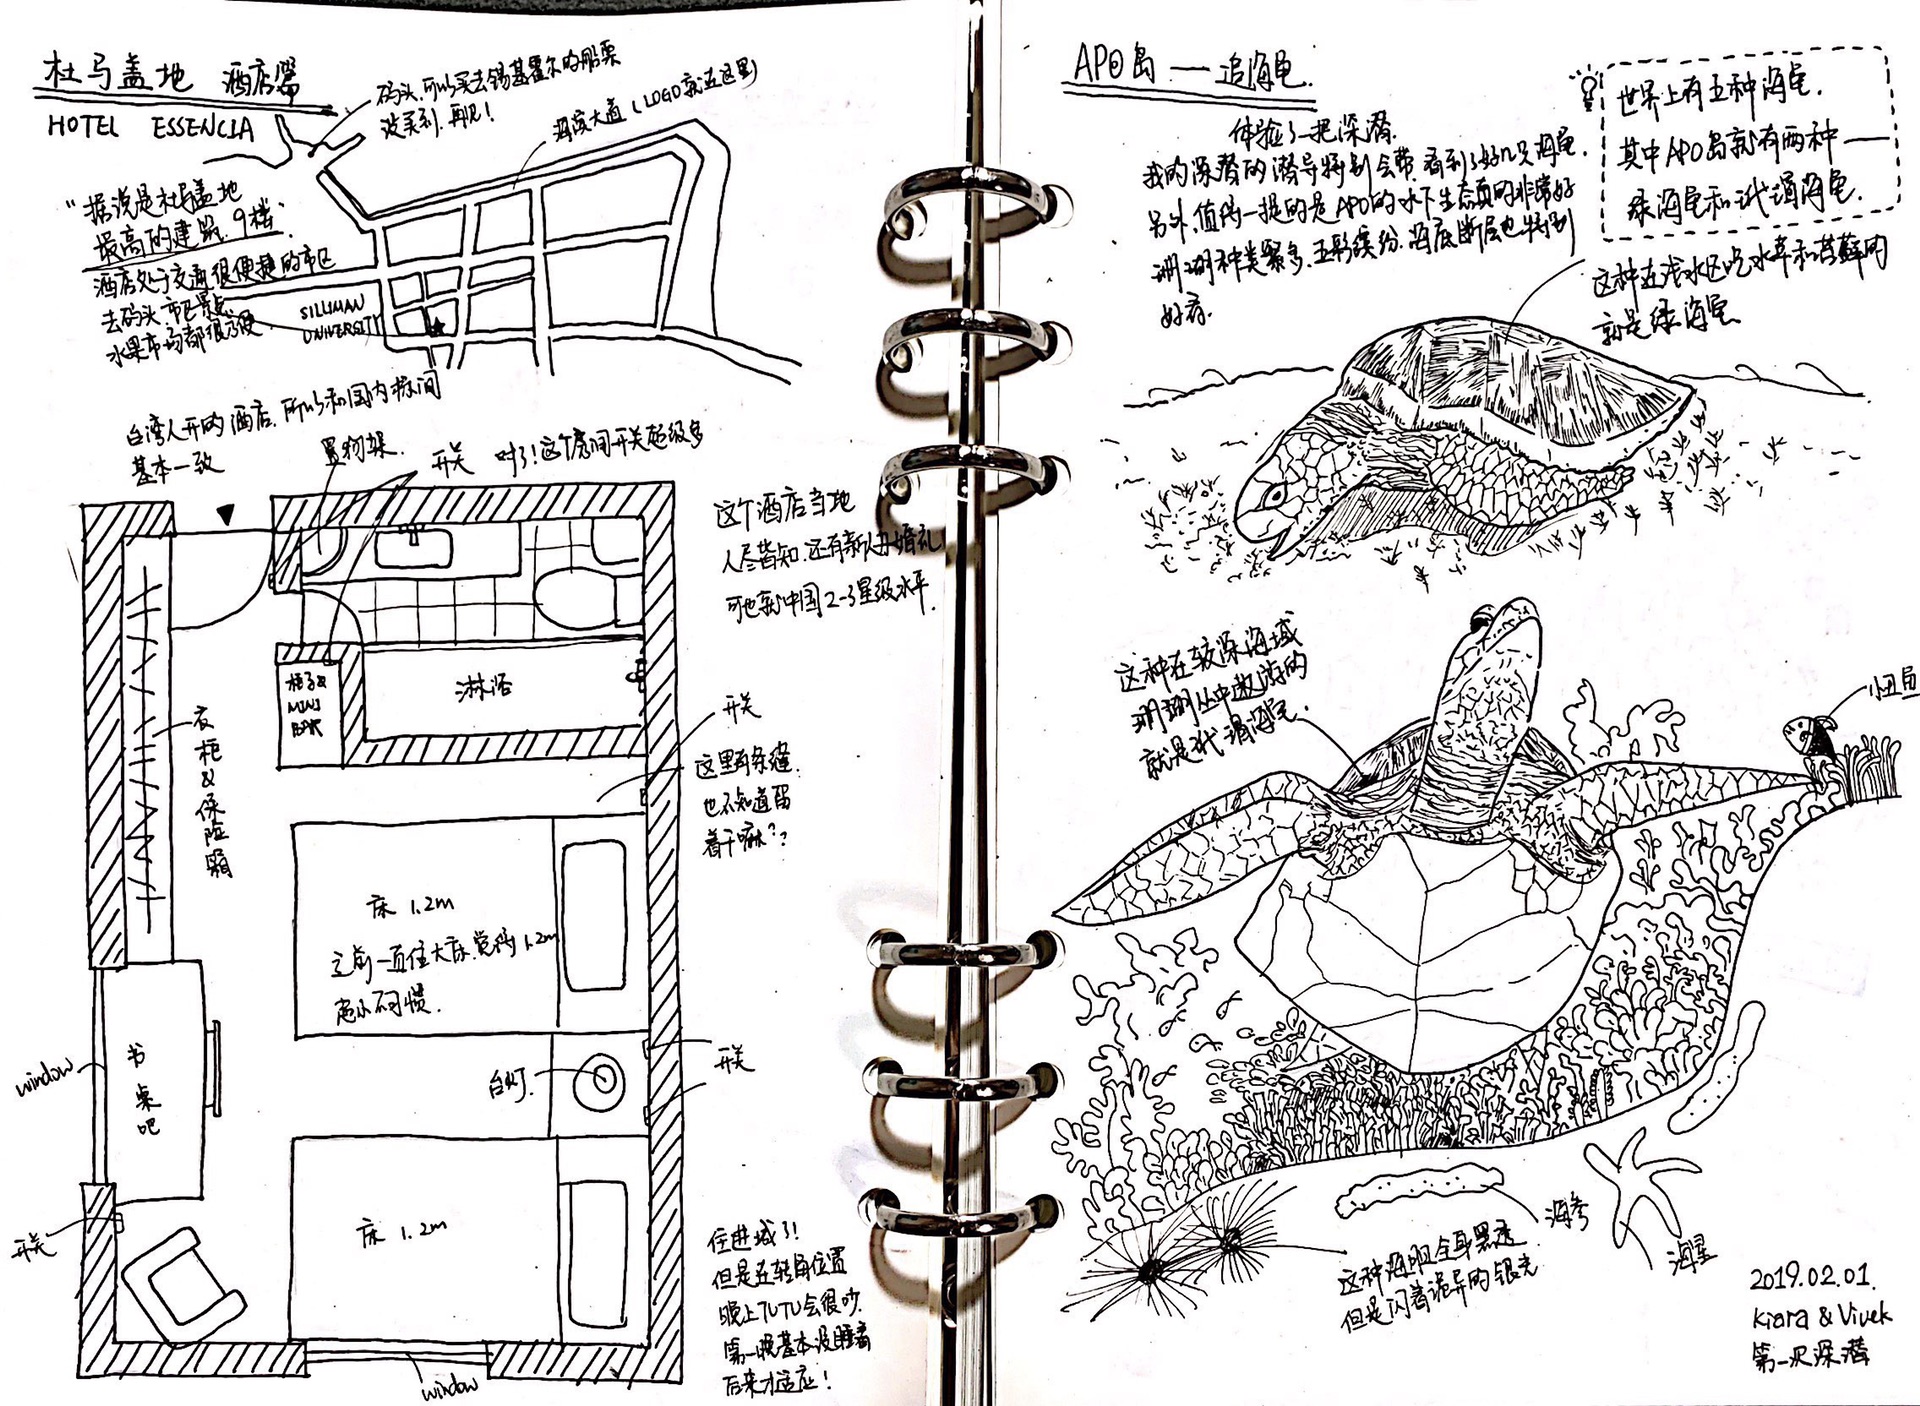 杜马盖地 酒店篇
HOTEL ESSENCIA
码头,所以买去锡基霍尔的船票
没买到,再见!
海滨大道(LOGO就在这里)
"据说是杜马盖地
最高的建筑,9楼"
酒店处于交通很便捷的市区
去码头 市区景点
水果市场都很方便
SILLIMAN
UNIVERSITY
台湾人开的酒店,所以和国内标间
基本一致
置物架
开关 对了!这个房间开关超级多
这个酒店当地
人尽皆知,还有新人办婚礼
可也就中国2-3星级水平.
柜子&
MINI
BAR
淋浴
衣柜&保险箱
开关
这里有条缝
也不知道留
着干嘛??
床 1.2m
之前一直住大床,觉得1.2m
超小不习惯.
window
书桌吧
台灯
开关
开关
床 1.2m
window
住进城了!
但是在转角位置
晚上TUTU会很吵
第一晚基本没睡着
后来才适应!
APO岛 — 追海龟.
体验了一把深潜.
我的深潜的潜导特别会带,看到了好几只海龟.
另外,值得一提的是APO的水下生态真的非常好
珊瑚种类繁多,五彩缤纷,海底断层也特别
好看.
世界上有五种海龟.
其中APO岛就有两种——
绿海龟和玳瑁海龟.
这种在浅水区吃水草和苔藓的
就是绿海龟
这种在较深海域
珊瑚丛中遨游的
就是玳瑁海龟.
小丑鱼
海参
海星
这种海胆全身黑透
但是闪着诡异的银光
2019.02.01.
Kiara & Vivek
第一次深潜